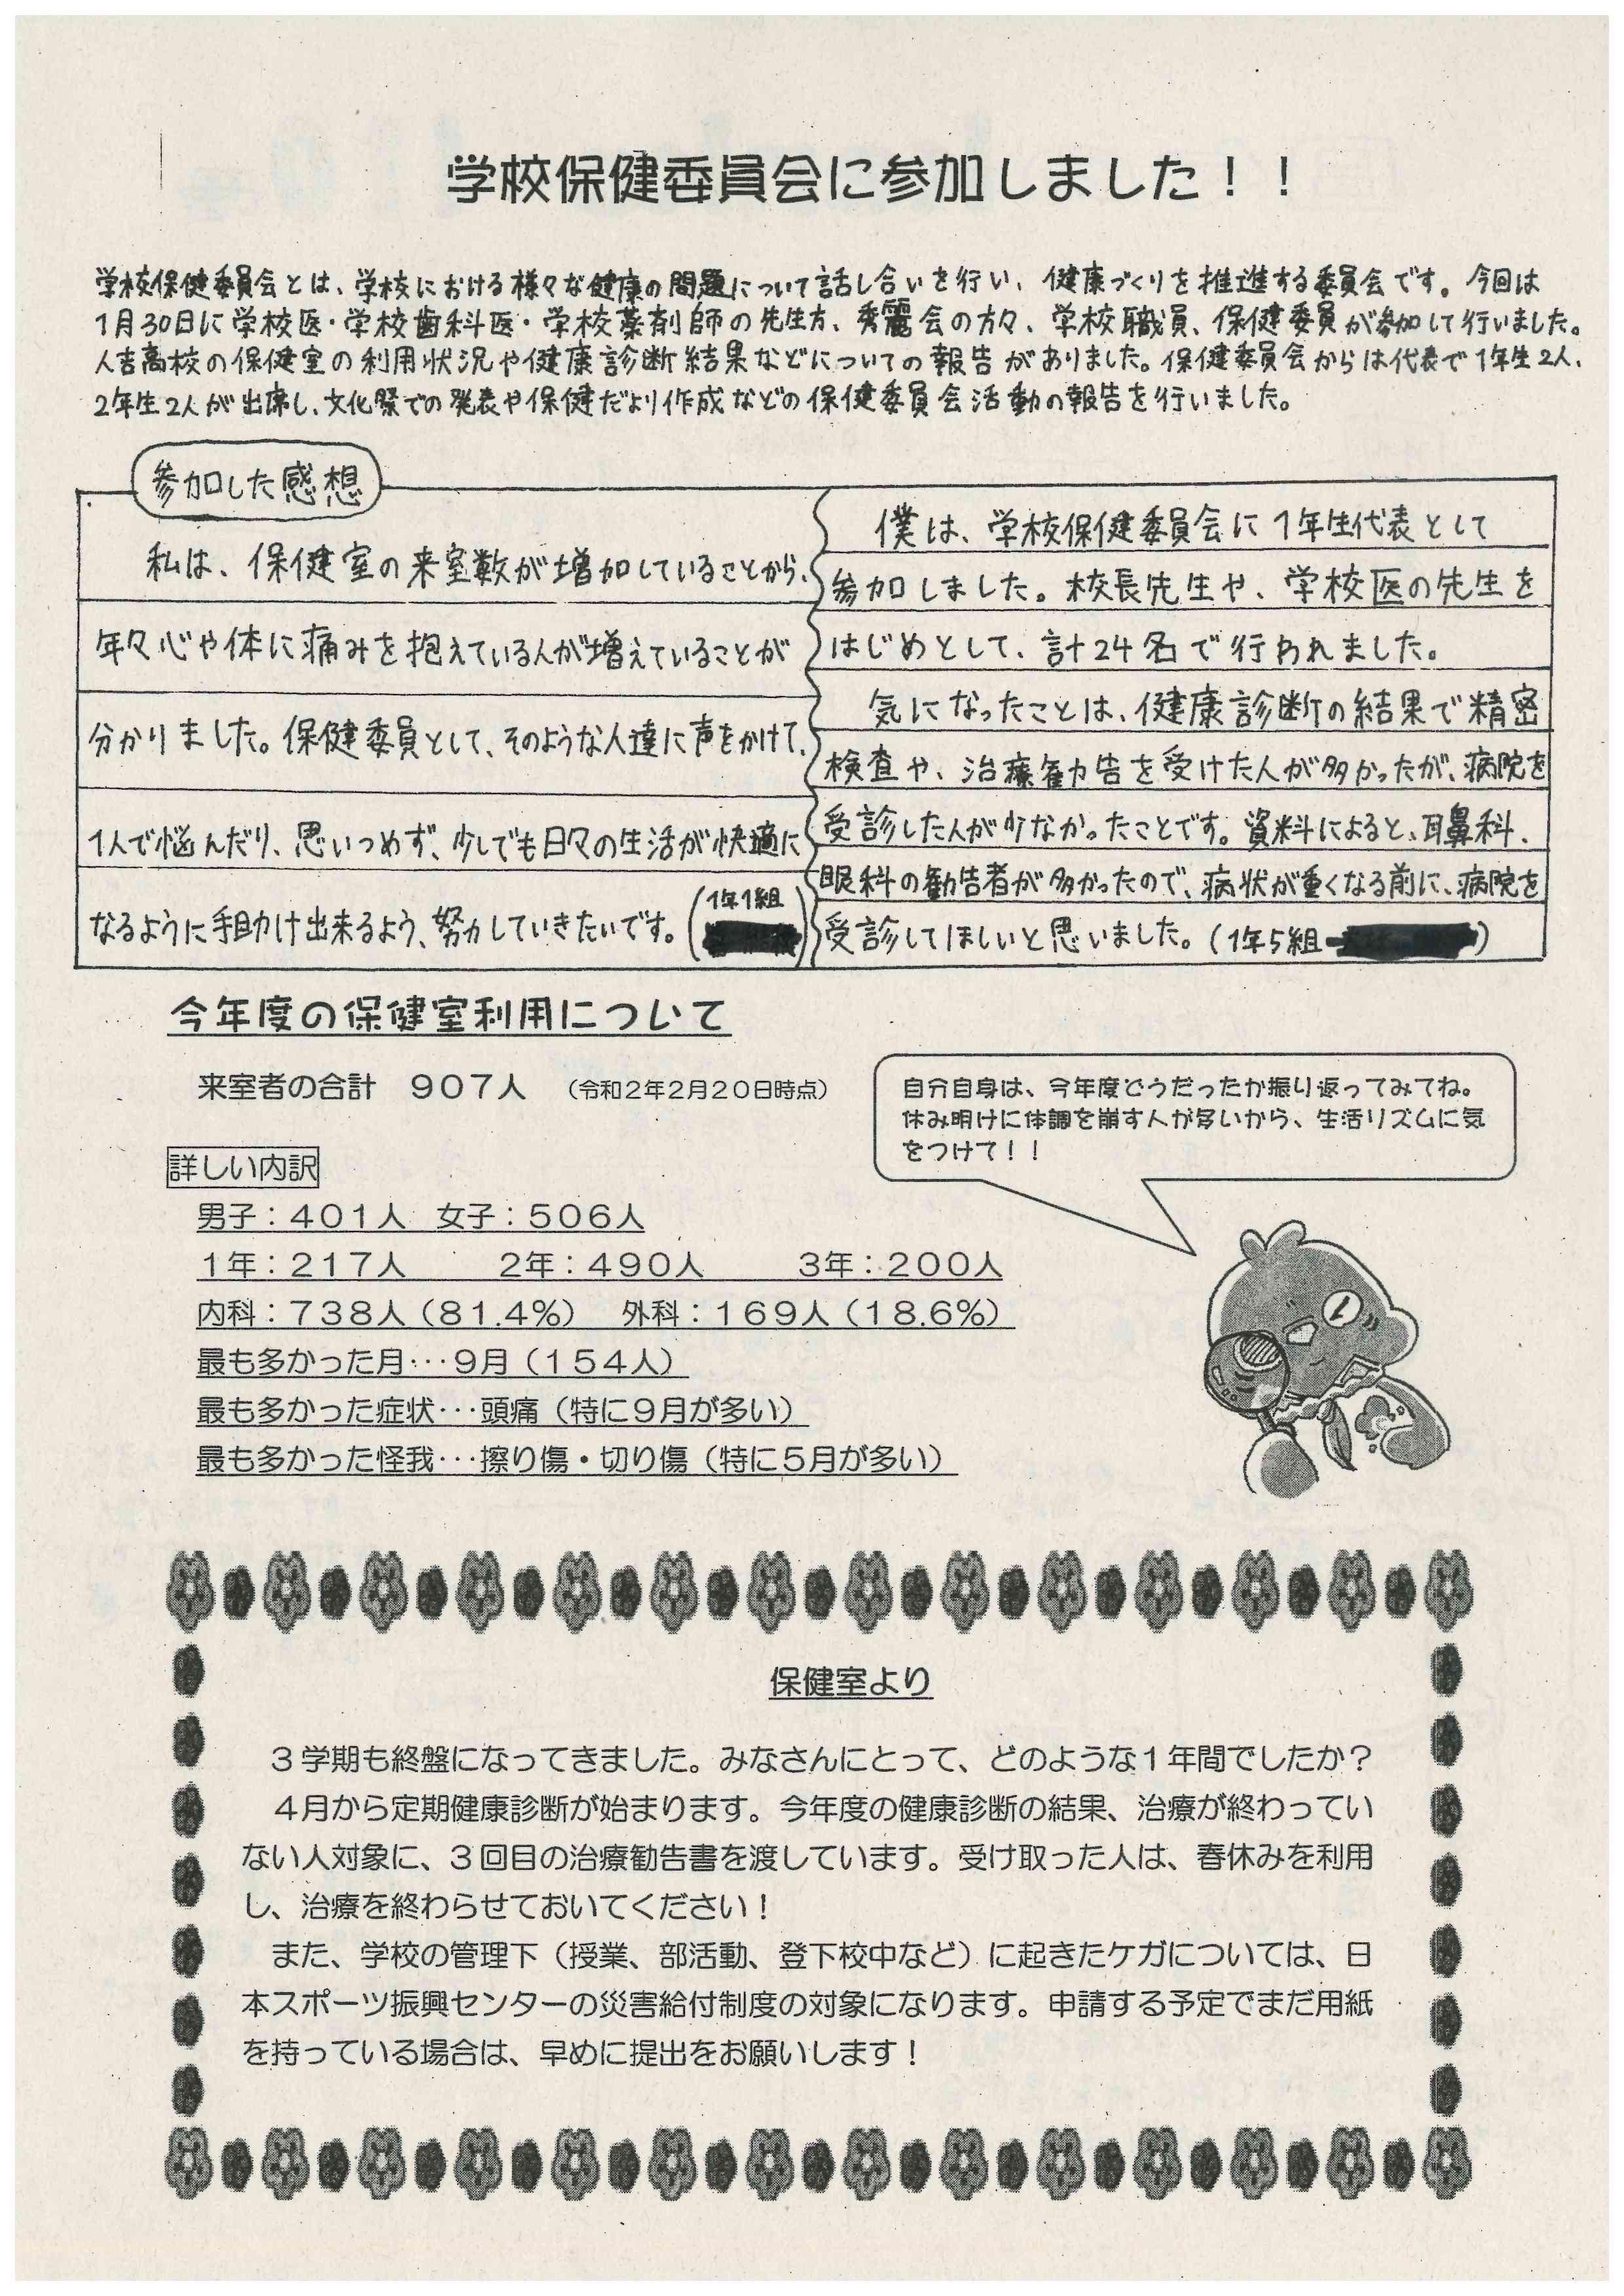 学校保健委員会に参加しました！！
学校保健委員会とは、学校における様々な健康の問題について話し合いを行い、健康づくりを推進する委員会です。今回は
1月30日に学校医・学校歯科医・学校薬剤師の先生方、秀麗会の方々、学校職員、保健委員が参加して行いました。
人吉高校の保健室の利用状況や健康診断結果などについての報告がありました。保健委員会からは代表で1年生2人、
2年生2人が出席し、文化祭での発表や保健だより作成などの保健委員会活動の報告を行いました。
参加した感想
私は、保健室の来室数が増加していることから、
年々心や体に痛みを抱えている人が増えていることが
分かりました。保健委員として、そのような人達に声をかけて、
1人で悩んだり、思いつめず、少しでも日々の生活が快適に
なるように手助け出来るよう、努力していきたいです。(1年1組)
僕は、学校保健委員会に1年生代表として
参加しました。校長先生や、学校医の先生を
はじめとして、計24名で行われました。
気になったことは、健康診断の結果で精密
検査や、治療勧告を受けた人が多かったが、病院を
受診した人が少なかったことです。資料によると、耳鼻科、
眼科の勧告者が多かったので、病状が重くなる前に、病院を
受診してほしいと思いました。(1年5組)
今年度の保健室利用について
来室者の合計　９０７人　（令和２年２月２０日時点）
自分自身は、今年度どうだったか振り返ってみてね。
休み明けに体調を崩す人が多いから、生活リズムに気
をつけて！！
詳しい内訳
男子：４０１人　女子：５０６人
１年：２１７人　　　２年：４９０人　　　３年：２００人
内科：７３８人（８１.４％）　外科：１６９人（１８.６％）
最も多かった月・・・９月（１５４人）
最も多かった症状・・・頭痛（特に９月が多い）
最も多かった怪我・・・擦り傷・切り傷（特に５月が多い）
保健室より
３学期も終盤になってきました。みなさんにとって、どのような１年間でしたか？
４月から定期健康診断が始まります。今年度の健康診断の結果、治療が終わってい
ない人対象に、３回目の治療勧告書を渡しています。受け取った人は、春休みを利用
し、治療を終わらせておいてください！
また、学校の管理下（授業、部活動、登下校中など）に起きたケガについては、日
本スポーツ振興センターの災害給付制度の対象になります。申請する予定でまだ用紙
を持っている場合は、早めに提出をお願いします！